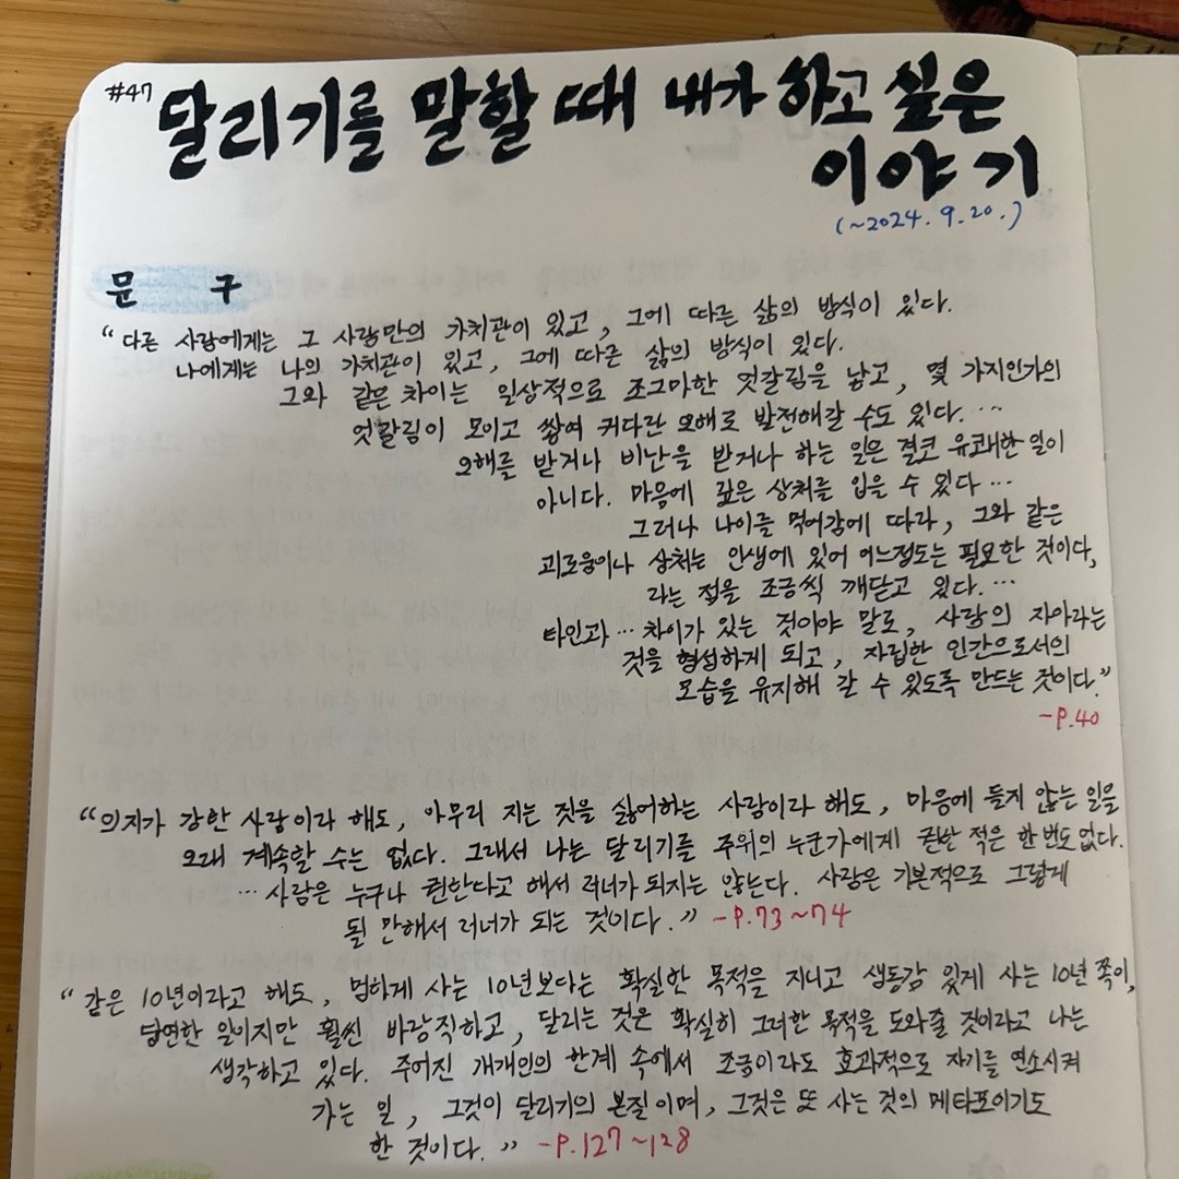 #47
달리기를 말할 때 내가 하고 싶은
이야기
(~2024. 9. 20.)
문 구
“다른 사람에게는 그 사람만의 가치관이 있고, 그에 따른 삶의 방식이 있다.
나에게는 나의 가치관이 있고, 그에 따른 삶의 방식이 있다.
그와 같은 차이는 일상적으로 조그마한 엇갈림을 낳고, 몇 가지인가의
엇갈림이 모이고 쌓여 커다란 오해로 발전해갈 수도 있다. …
오해를 받거나 비난을 받거나 하는 일은 결코 유쾌한 일이
아니다. 마음에 깊은 상처를 입을 수 있다 …
그러나 나이를 먹어감에 따라, 그와 같은
괴로움이나 상처는 인생에 있어 어느정도는 필요한 것이다,
라는 점을 조금씩 깨닫고 있다. …
타인과 … 차이가 있는 것이야 말로, 사람의 자아라는
것을 형성하게 되고, 자립한 인간으로서의
모습을 유지해 갈 수 있도록 만드는 것이다.”
-P.40
“의지가 강한 사람이라 해도, 아무리 지는 것을 싫어하는 사람이라 해도, 마음에 들지 않는 일을
오래 계속할 수는 없다. 그래서 나는 달리기를 주위의 누군가에게 권한 적은 한번도 없다.
… 사람은 누구나 권한다고 해서 러너가 되지는 않는다. 사람은 기본적으로 그렇게
될 만해서 러너가 되는 것이다.” -P.73~74
“같은 10년이라고 해도, 멍하게 사는 10년보다는 확실한 목적을 지니고 생동감 있게 사는 10년 쪽이,
당연한 일이지만 훨씬 바람직하고, 달리는 것은 확실히 그러한 목적을 도와줄 것이라고 나는
생각하고 있다. 주어진 개개인의 한계 속에서 조금이라도 효과적으로 자기를 연소시켜
가는 일, 그것이 달리기의 본질이며, 그것은 또 사는 것의 메타포이기도
한 것이다.” -P.127~128